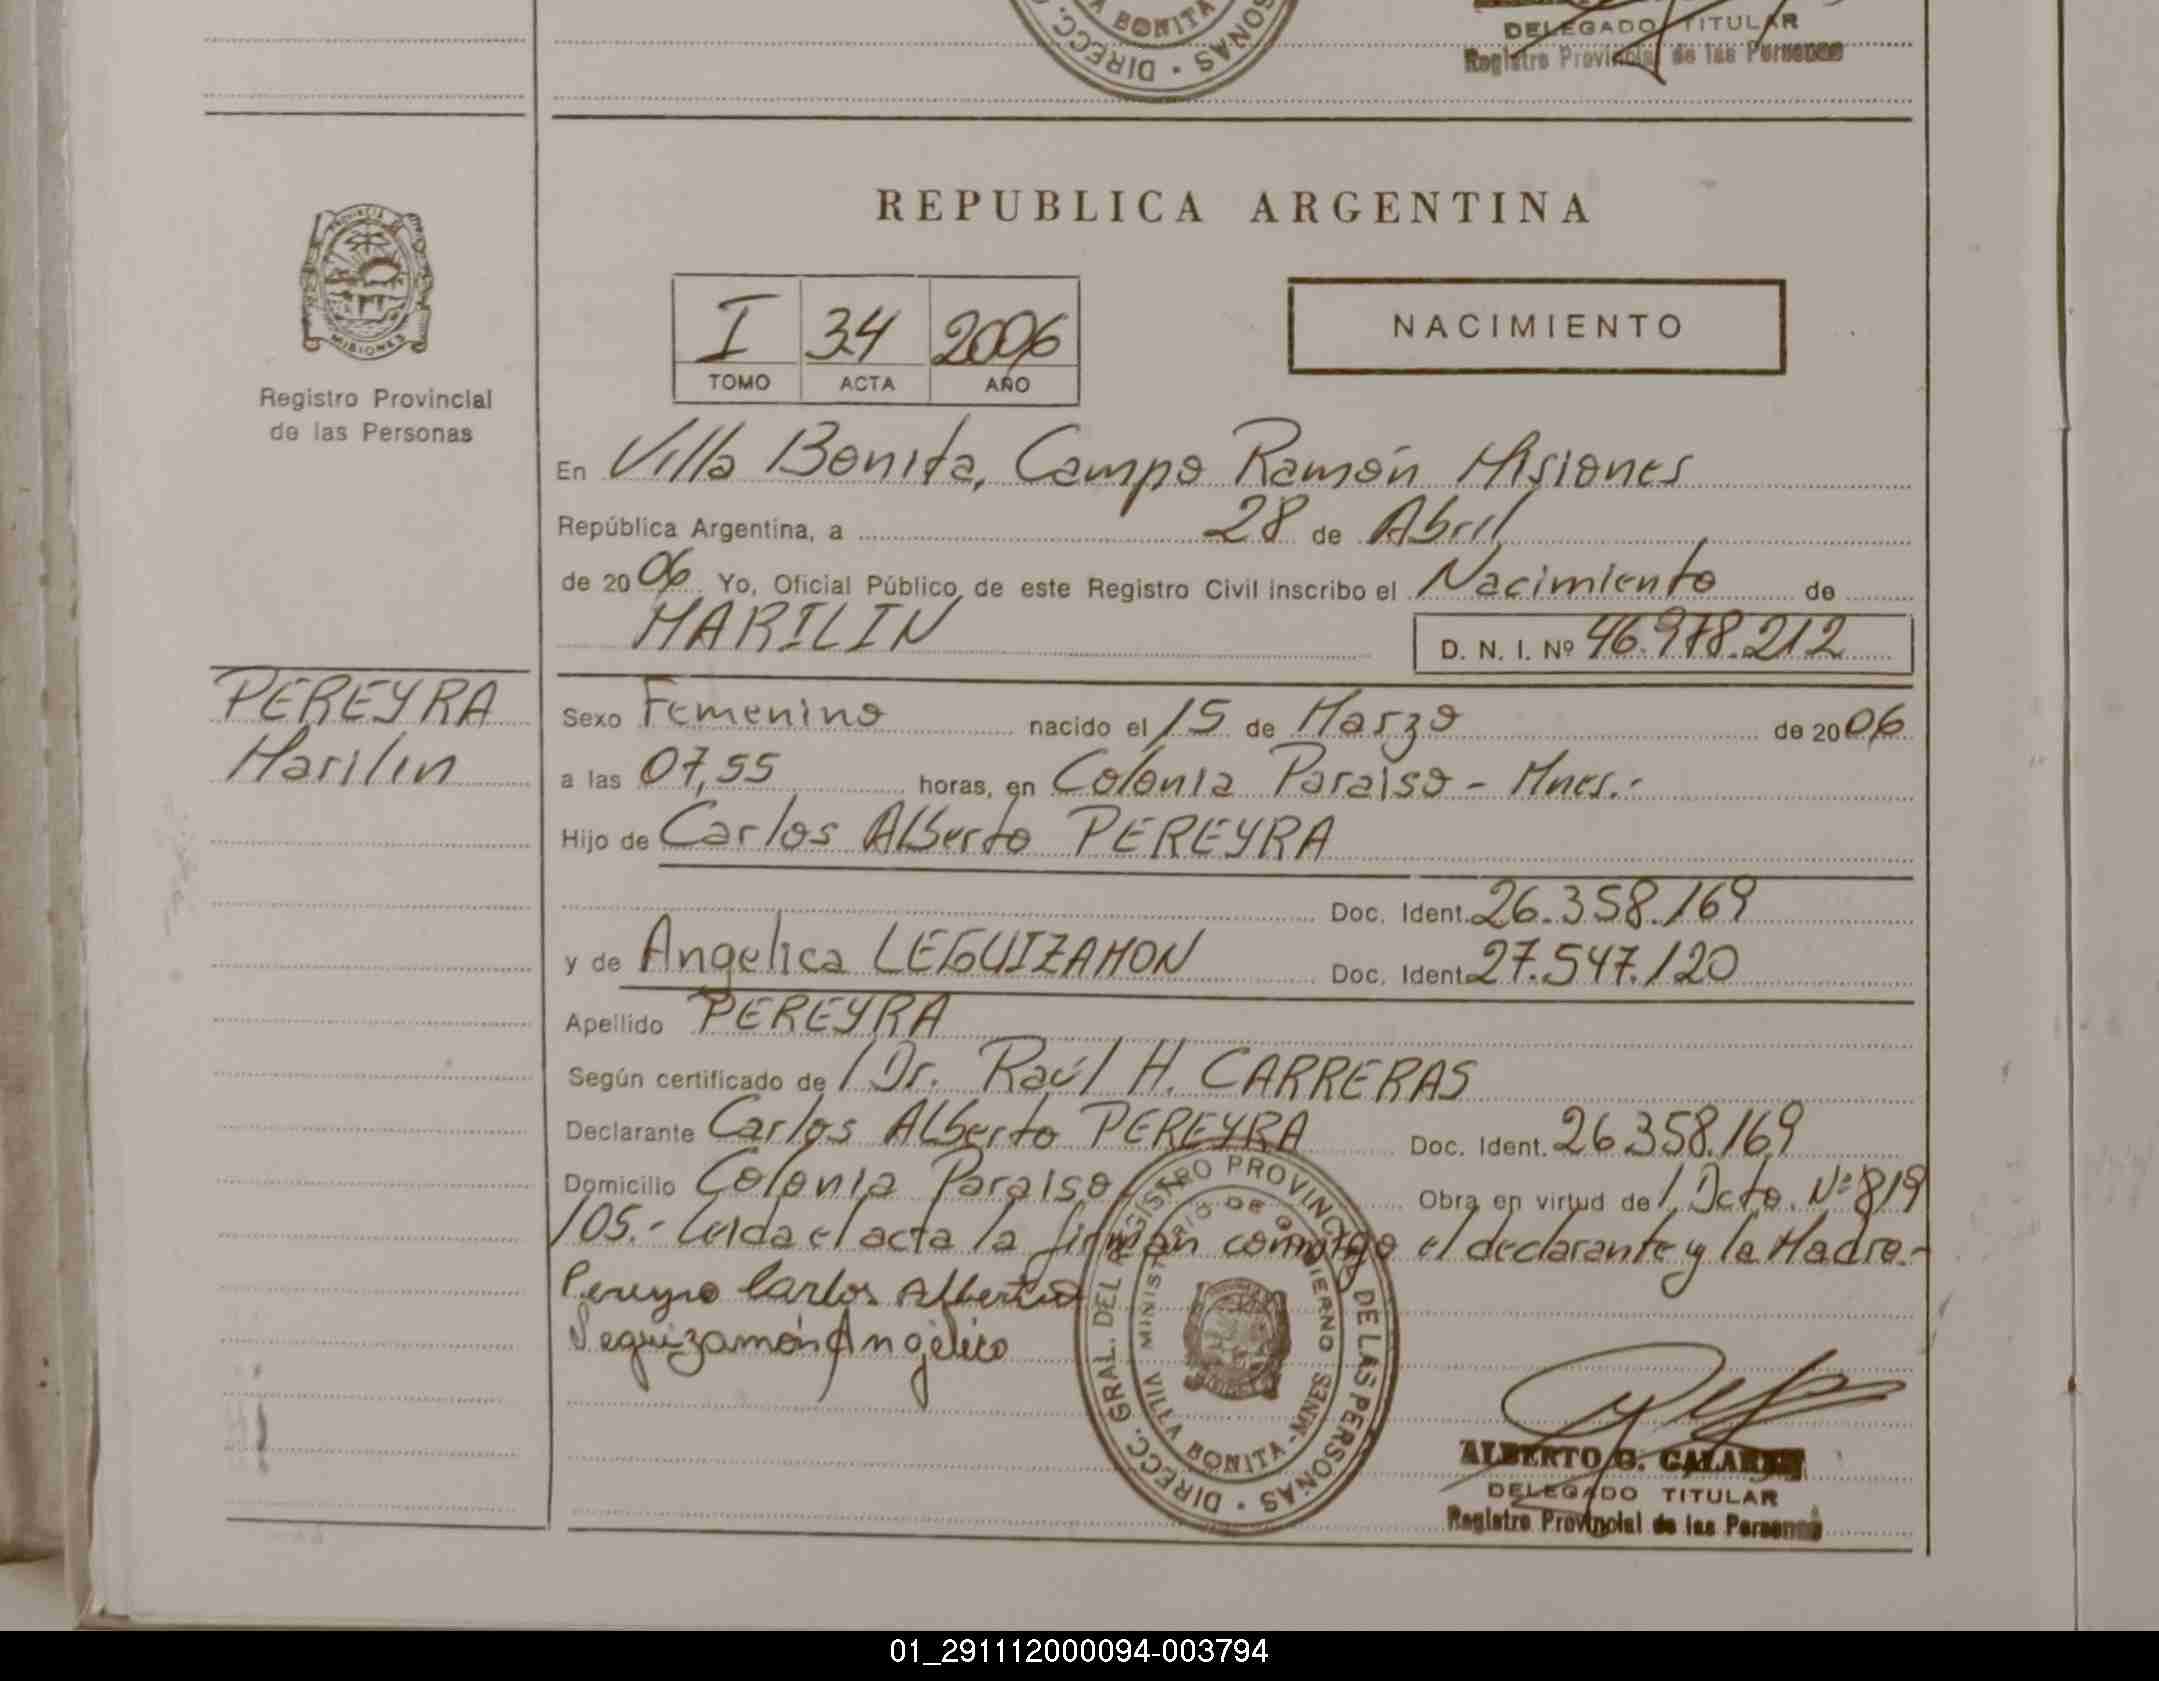 VILLA BONITA
DIRECC. PERSONAS
DELEGADO TITULAR
Registro Provincial de las Personas
REPUBLICA ARGENTINA
PROVINCIA DE MISIONES
Registro Provincial
de las Personas
I 34 2006
TOMO ACTA AÑO
NACIMIENTO
En Villa Bonita, Campo Ramón Misiones
República Argentina, a 28 de Abril
de 2006 Yo, Oficial Público de este Registro Civil inscribo el Nacimiento de
MARILIN D. N. I. Nº 46.978.212
PEREYRA
Marilin
Sexo Femenino nacido el 15 de Marzo de 2006
a las 07,55 horas, en Colonia Paraiso - Mnes.-
Hijo de Carlos Alberto PEREYRA
Doc. Ident. 26.358.169
y de Angelica LEGUIZAMON Doc. Ident. 27.547.120
Apellido PEREYRA
Según certificado de / Dr. Raúl H. CARRERAS
Declarante Carlos Alberto PEREYRA Doc. Ident. 26358.169
Domicilio Colonia Paraiso Obra en virtud de / Dcto. Nº 819
/05.- Leida el acta la firman conmigo el declarante y la Madre.-
Pereyra Carlos Alberto
Leguizamón Angélica
DIRECC. GRAL. DEL REGISTRO PROVINCIAL DE LAS PERSONAS
MINISTERIO DE GOBIERNO
VILLA BONITA - MNES
ALBERTO G.
DELEGADO TITULAR
Registro Provincial de las Personas
01_291112000094-003794